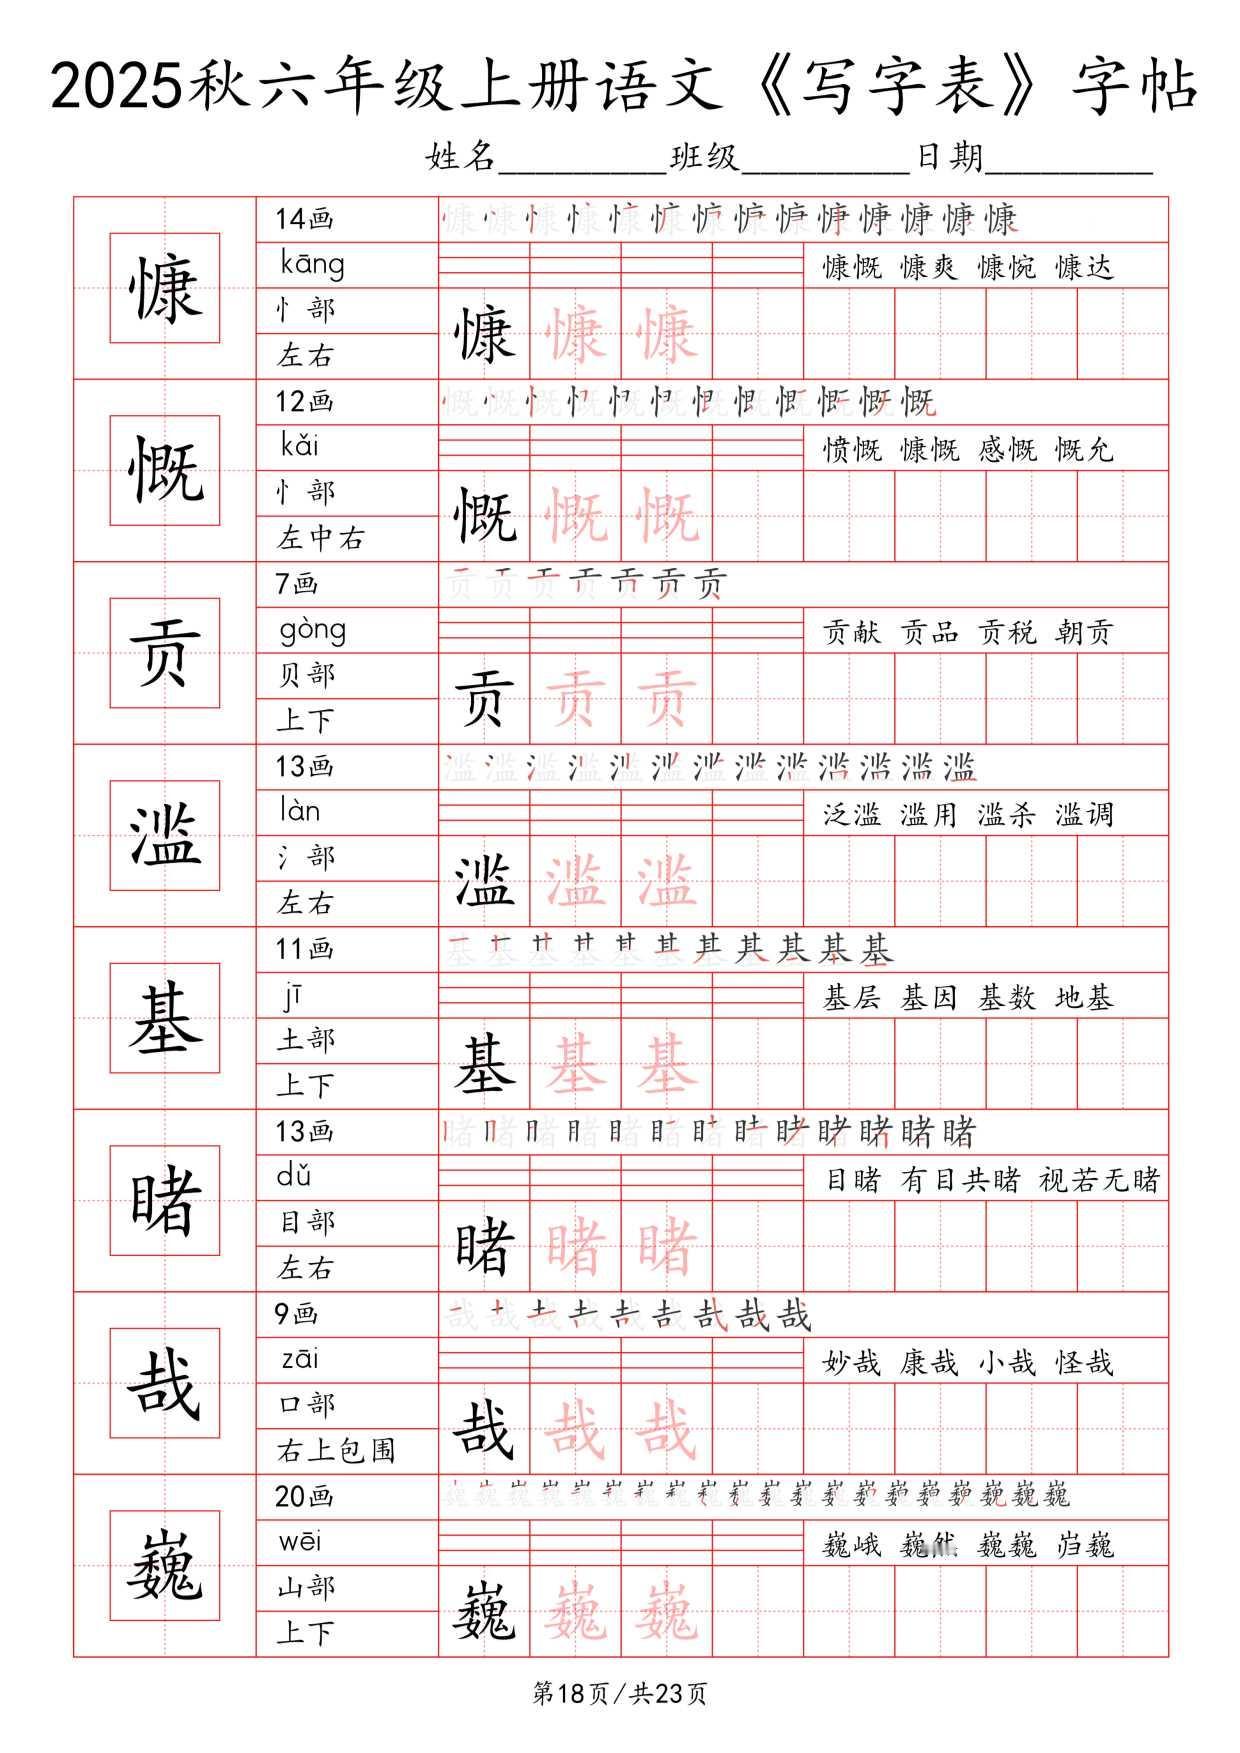 2025秋六年级上册语文《写字表》字帖
姓名_________班级_________日期_________
慷
14画
kāng 慷慨 慷爽 慷惋 慷达
忄部
左右
慷 慷 慷
慨
12画
kǎi 愤慨 慷慨 感慨 慨允
忄部
左中右
慨 慨 慨
贡
7画
gòng 贡献 贡品 贡税 朝贡
贝部
上下
贡 贡 贡
滥
13画
làn 泛滥 滥用 滥杀 滥调
氵部
左右
滥 滥 滥
基
11画
jī 基层 基因 基数 地基
土部
上下
基 基 基
睹
13画
dǔ 目睹 有目共睹 视若无睹
目部
左右
睹 睹 睹
哉
9画
zāi 妙哉 康哉 小哉 怪哉
口部
右上包围
哉 哉 哉
巍
20画
wēi 巍峨 巍然 巍巍 岿巍
山部
上下
巍 巍 巍
第18页/共23页